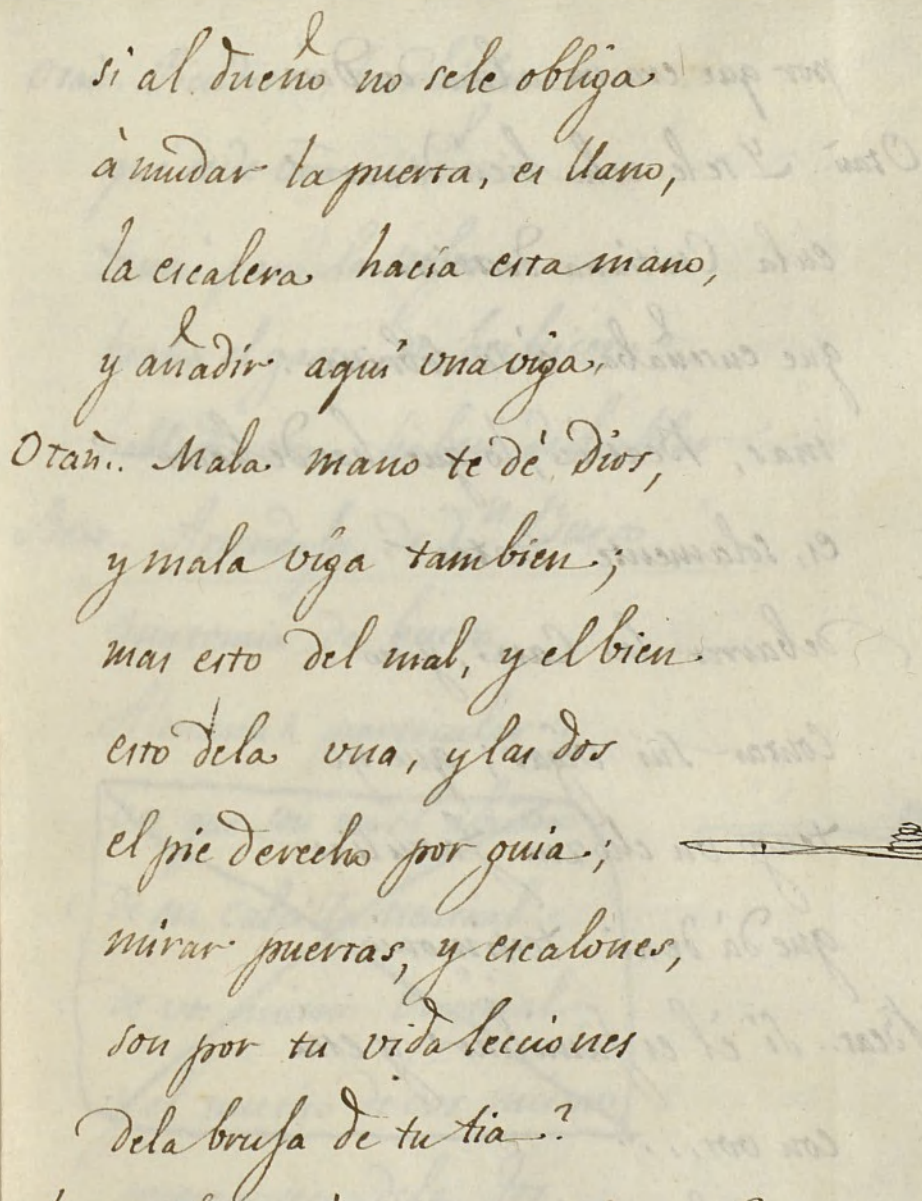 si al dueño no sele obliga
à mudar la puerta, es llano,
la escalera hacia esta mano,
y añadir aqui una viga.
Otañ.. Mala mano te dé Dios,
y mala viga tambien.;
mas esto del mal, y el bien
esto dela una, y las dos
el pie derecho por guia.;
mirar puertas, y escalones,
son por tu vida lecciones
dela bruja de tu tia.?